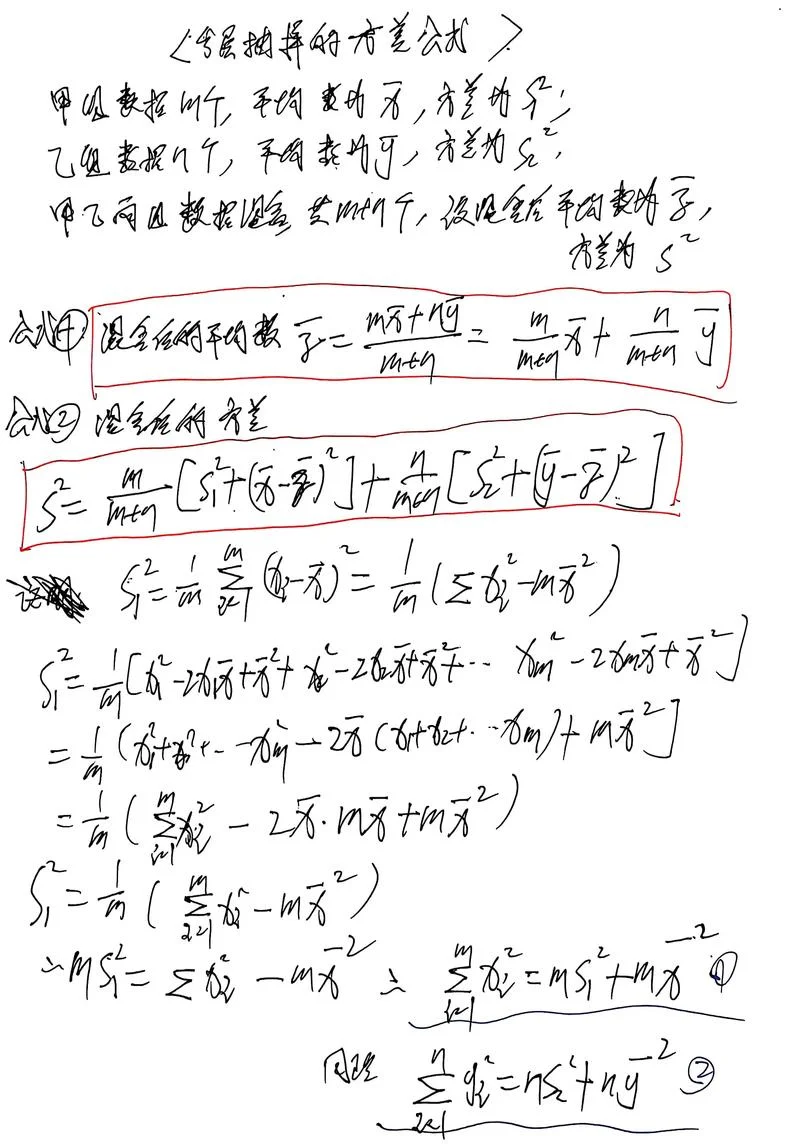 〈分层抽样的方差公式〉
甲组数据m个, 平均数为x̄, 方差为S₁²;
乙组数据n个, 平均数为ȳ, 方差为S₂²,
甲乙两组数据混合, 共m+n个, 设混合后平均数为z̄,
方差为 S²
公式① 混合后的平均数 z̄ = (mx̄+nȳ)/(m+n) = m/(m+n) x̄ + n/(m+n) ȳ
公式② 混合后的方差
S² = m/(m+n) [S₁²+(x̄-z̄)²] + n/(m+n) [S₂²+(ȳ-z̄)²]
S₁² = 1/m ∑_{i=1}^{m} (xᵢ-x̄)² = 1/m (∑xᵢ²-mx̄²)
S₁² = 1/m [x₁²-2x₁x̄+x̄²+x₂²-2x₂x̄+x̄²+… xm²-2xmx̄+x̄²]
= 1/m (x₁²+x₂²+…xm²-2x̄(x₁+x₂+…xm)+mx̄²]
= 1/m (∑_{i=1}^{m} xᵢ² - 2x̄·mx̄+mx̄²)
S₁² = 1/m (∑_{i=1}^{m} xᵢ²-mx̄²)
∴ mS₁² = ∑xᵢ² - mx̄² ∴ ∑_{i=1}^{m} xᵢ² = mS₁²+mx̄² ①
同理 ∑_{i=1}^{n} yᵢ² = nS₂²+nȳ² ②